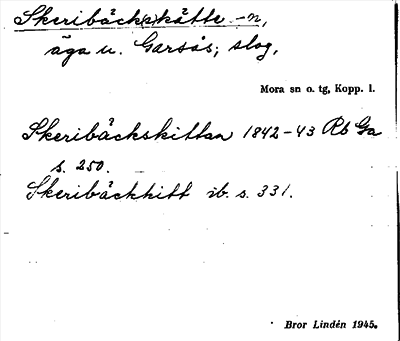 Skeribäck(s)kätte -n,
äga u. Garsås; slog,
Mora sn o. tg, Kopp. l.
Skeribäckskittan 1842-43 Rb Ga
s. 250.
Skeribäckkitt ib. s. 331.
Bror Lindén 1945.